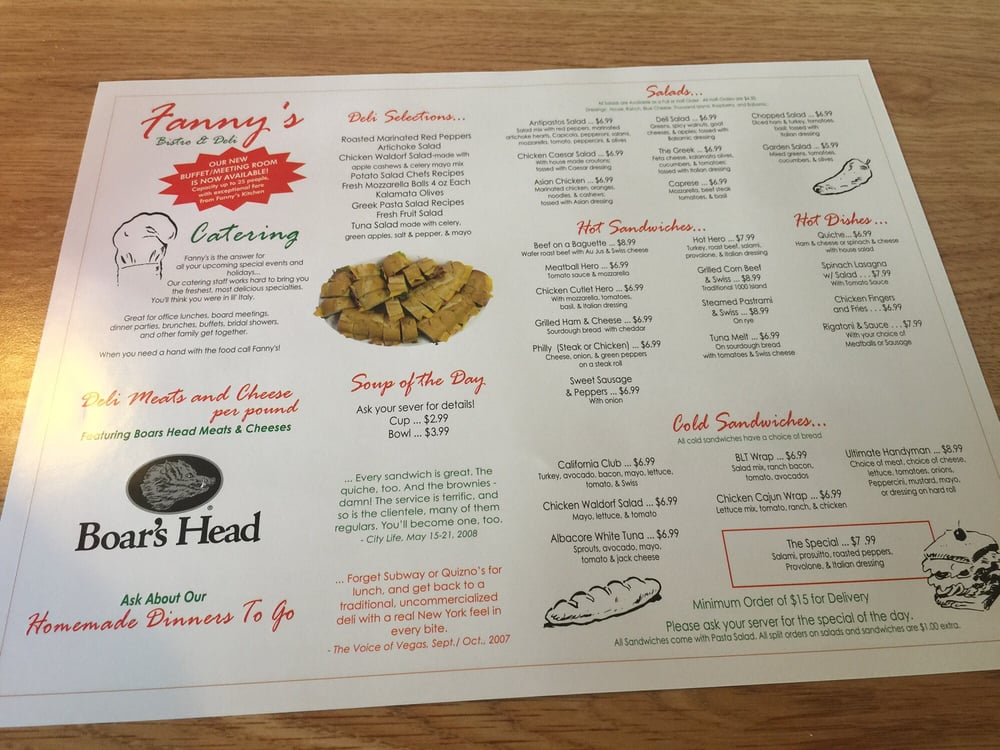 Fanny's
Bistro & Deli
OUR NEW
BUFFET/MEETING ROOM
IS NOW AVAILABLE!
Capacity up to 25 people,
with exceptional fare
from Fanny's Kitchen
Catering
Fanny's is the answer for
all your upcoming special events and
holidays...
Our catering staff works hard to bring you
the freshest, most delicious specialties.
You'll think you were in lil' Italy.
Great for office lunches, board meetings,
dinner parties, brunches, buffets, bridal showers,
and other family get together.
When you need a hand with the food call Fanny's!
Deli Meats and Cheese
per pound
Featuring Boars Head Meats & Cheeses
Boar's Head
®
Ask About Our
Homemade Dinners To Go
Deli Selections...
Roasted Marinated Red Peppers
Artichoke Salad
Chicken Waldorf Salad-made with
apple cashews & celery mayo mix
Potato Salad Chefs Recipes
Fresh Mozzarella Balls 4 oz Each
Kalamata Olives
Greek Pasta Salad Recipes
Fresh Fruit Salad
Tuna Salad made with celery,
green apples, salt & pepper, & mayo
Soup of the Day
Ask your sever for details!
Cup ... $2.99
Bowl ... $3.99
... Every sandwich is great. The
quiche, too. And the brownies -
damn! The service is terrific, and
so is the clientele, many of them
regulars. You'll become one, too.
- City Life, May 15-21, 2008
... Forget Subway or Quizno's for
lunch, and get back to a
traditional, uncommercialized
deli with a real New York feel in
every bite.
- The Voice of Vegas, Sept./ Oct., 2007
Salads...
All Salads are Available as a Full or Half Order. All Half Orders are $4.50.
Dressings: House, Ranch, Blue Cheese, Thousand Island, Raspberry, and Balsamic.
Antipastos Salad ... $6.99
Salad mix with red peppers, marinated
artichoke hearts, Capicola, pepperoni, salami,
mozzarella, tomato, pepperoncini, & olives
Chicken Caesar Salad ... $6.99
With house made croutons;
tossed with Caesar dressing
Asian Chicken ... $6.99
Marinated chicken, oranges,
noodles, & cashews;
tossed with Asian dressing
Deli Salad ... $6.99
Greens, spicy walnuts, goat
cheeses, & apples; tossed with
Balsamic dressing
The Greek ... $6.99
Feta cheese, kalamata olives,
cucumbers, & tomatoes;
tossed with Italian dressing
Caprese ... $6.99
Mozzarella, beef steak
tomatoes, & basil
Chopped Salad ... $6.99
Diced ham & turkey, tomatoes,
basil; tossed with
Italian dressing
Garden Salad ... $5.99
Mixed greens, tomatoes,
cucumbers, & olives
Hot Sandwiches...
Beef on a Baguette ... $8.99
Wafer roast beef with Au Jus & Swiss cheese
Meatball Hero ... $6.99
Tomato sauce & mozzarella
Chicken Cutlet Hero ... $6.99
With mozzarella, tomatoes,
basil, & Italian dressing
Grilled Ham & Cheese ... $6.99
Sourdough bread with cheddar
Philly (Steak or Chicken) ... $6.99
Cheese, onion, & green peppers
on a steak roll
Sweet Sausage
& Peppers ... $6.99
With onion
Hot Hero ... $7.99
Turkey, roast beef, salami,
provolone, & Italian dressing
Grilled Corn Beef
& Swiss ... $8.99
Traditional 1000 Island
Steamed Pastrami
& Swiss ... $8.99
On rye
Tuna Melt ... $6.99
On sourdough bread
with tomatoes & Swiss cheese
Hot Dishes...
Quiche...$6.99
Ham & cheese or spinach & cheese
with house salad
Spinach Lasagna
w/ Salad . . . $7.99
With Tomato Sauce
Chicken Fingers
and Fries . . .$6.99
Rigatoni & Sauce . . .$7.99
With your choice of
Meatballs or Sausage
Cold Sandwiches...
All cold sandwiches have a choice of bread
California Club ... $6.99
Turkey, avocado, bacon, mayo, lettuce,
tomato, & Swiss
Chicken Waldorf Salad ... $6.99
Mayo, lettuce, & tomato
Albacore White Tuna ... $6.99
Sprouts, avocado, mayo,
tomato & jack cheese
BLT Wrap ... $6.99
Salad mix, ranch bacon,
tomato, avocados
Chicken Cajun Wrap ... $6.99
Lettuce mix, tomato, ranch, & chicken
Ultimate Handyman ... $8.99
Choice of meat, choice of cheese,
lettuce, tomatoes, onions,
Peppercini, mustard, mayo,
or dressing on hard roll
The Special ... $7 .99
Salami, prosuitto, roasted peppers,
Provolone, & Italian dressing
Minimum Order of $15 for Delivery
Please ask your server for the special of the day.
All Sandwiches come with Pasta Salad. All split orders on salads and sandwiches are $1.00 extra.